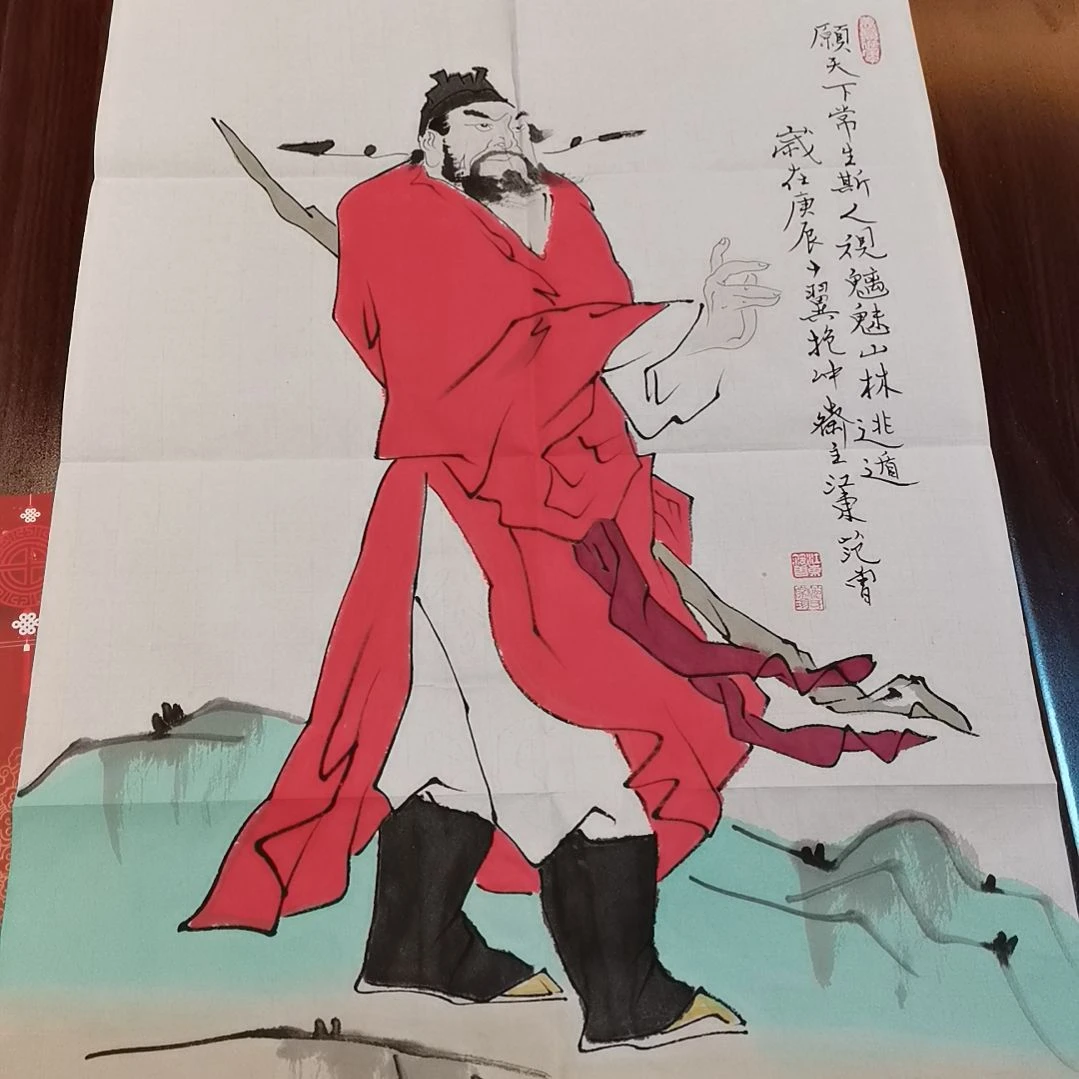 願天下常生斯人視魑魅山林逃遁
歲在庚辰十翼抱冲齋主江東范曾